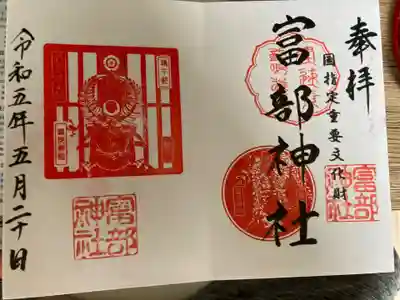 奉拝
国指定重要文化財
富部神社
富部神社
富部神社
令和五年五月二十日